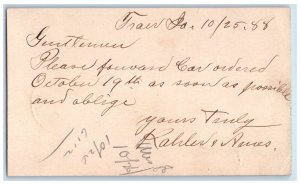 Traer Ia. 10/25.88
Gentlemen
Please forward Car ordered
October 19th as soon as possible
and oblige
yours Truly
Kahler & Ames.
10/25
10/19